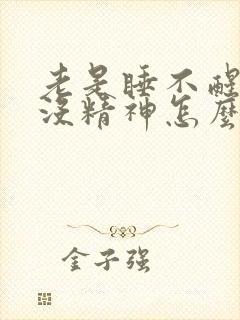 老是睡不醒
没精神怎麽
金子强